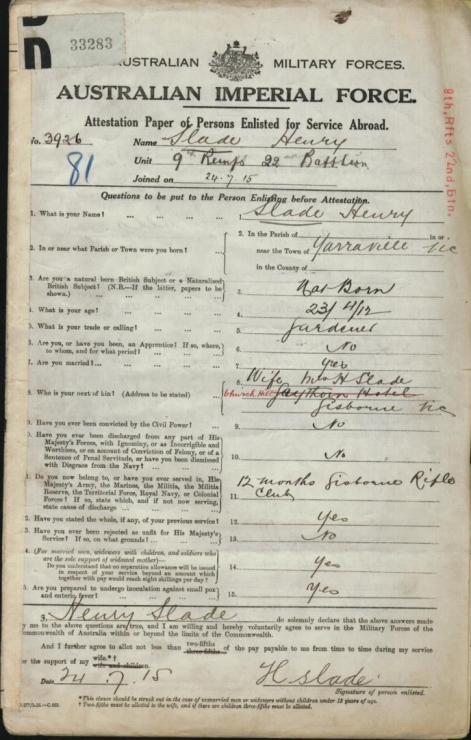 33283
AUSTRALIAN MILITARY FORCES.
AUSTRALIAN IMPERIAL FORCE.
Attestation Paper of Persons Enlisted for Service Abroad.
No. 3926 Name Slade Henry
81
Unit 9th Reinfs 22 Battalion
Joined on 24.7.15
8th, Rfts 22nd, Btn.
Questions to be put to the Person Enlisting before Attestation.
1. What is your Name? ... ... ... ... Slade Henry
2. In or near what Parish or Town were you born? ...
2. In the Parish of in or
near the Town of Yarraville Vic
in the County of
3. Are you a natural born British Subject or a Naturalised
British Subject? (N.B.—If the latter, papers to be
shown.) ... ... ... ...
3. Nat Born
4. What is your age? ... ... ... ... 4. 23/ 4/12
5. What is your trade or calling? ... ... ... 5. Gardener
6. Are you, or have you been, an Apprentice? If so, where,
to whom, and for what period? ... ...
6. No
7. Are you married? ... ... ... ... 7. Yes
8. Who is your next of kin? (Address to be stated) ...
8. Wife Mrs H Slade
Church Hill Hotel
Gisborne Vic
9. Have you ever been convicted by the Civil Power? ... 9. No
10. Have you ever been discharged from any part of His
Majesty's Forces, with Ignominy, or as Incorrigible and
Worthless, or on account of Conviction of Felony, or of a
Sentence of Penal Servitude, or have you been dismissed
with Disgrace from the Navy? ... ...
10. No
11. Do you now belong to, or have you ever served in, His
Majesty's Army, the Marines, the Militia, the Militia
Reserve, the Territorial Force, Royal Navy, or Colonial
Forces? If so, state which, and if not now serving,
state cause of discharge ... ...
11. 12 months Gisborne Rifle
Club
12. Have you stated the whole, if any, of your previous service? 12. Yes
13. Have you ever been rejected as unfit for His Majesty's
Service? If so, on what grounds? ... ...
13. No
14. (For married men, widowers with children, and soldiers who
are the sole support of widowed mother)—
Do you understand that no separation allowance will be issued
in respect of your service beyond an amount which
together with pay would reach eight shillings per day?
14. Yes
15. Are you prepared to undergo inoculation against small pox
and enteric fever? ... ... ...
15. Yes
Henry Slade do solemnly declare that the above answers made
by me to the above questions are true, and I am willing and hereby voluntarily agree to serve in the Military Forces of the
Commonwealth of Australia within or beyond the limits of the Commonwealth.
And I further agree to allot not less than two-fifths three-fifths of the pay payable to me from time to time during my service
for the support of my wife.*† wife and children.
Date 24.7.15 H Slade
Signature of person enlisted.
*This clause should be struck out in the case of unmarried men or widowers without children under 18 years of age.
† Two-fifths must be allotted to the wife, and if there are children three-fifths must be allotted.